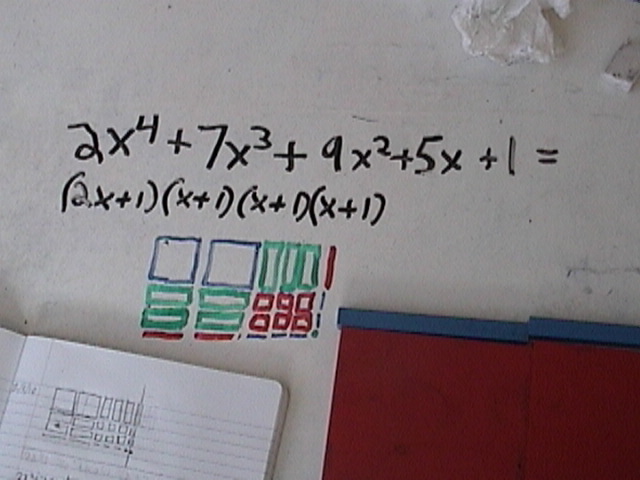 2x⁴+7x³+9x²+5x+1=
(2x+1)(x+1)(x+1)(x+1)